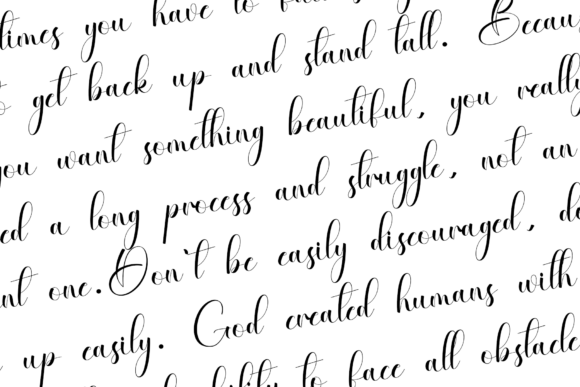 times you have to
to get back up and stand tall. Becau
you want something beautiful, you really
ed a long process and struggle, not an
nt one. Don't be easily discouraged, d
up easily. God created humans with
to face all obstacle